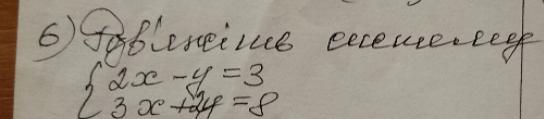 6) Розв'яжіть систему
{ 2x - y = 3
{ 3x + 2y = 8